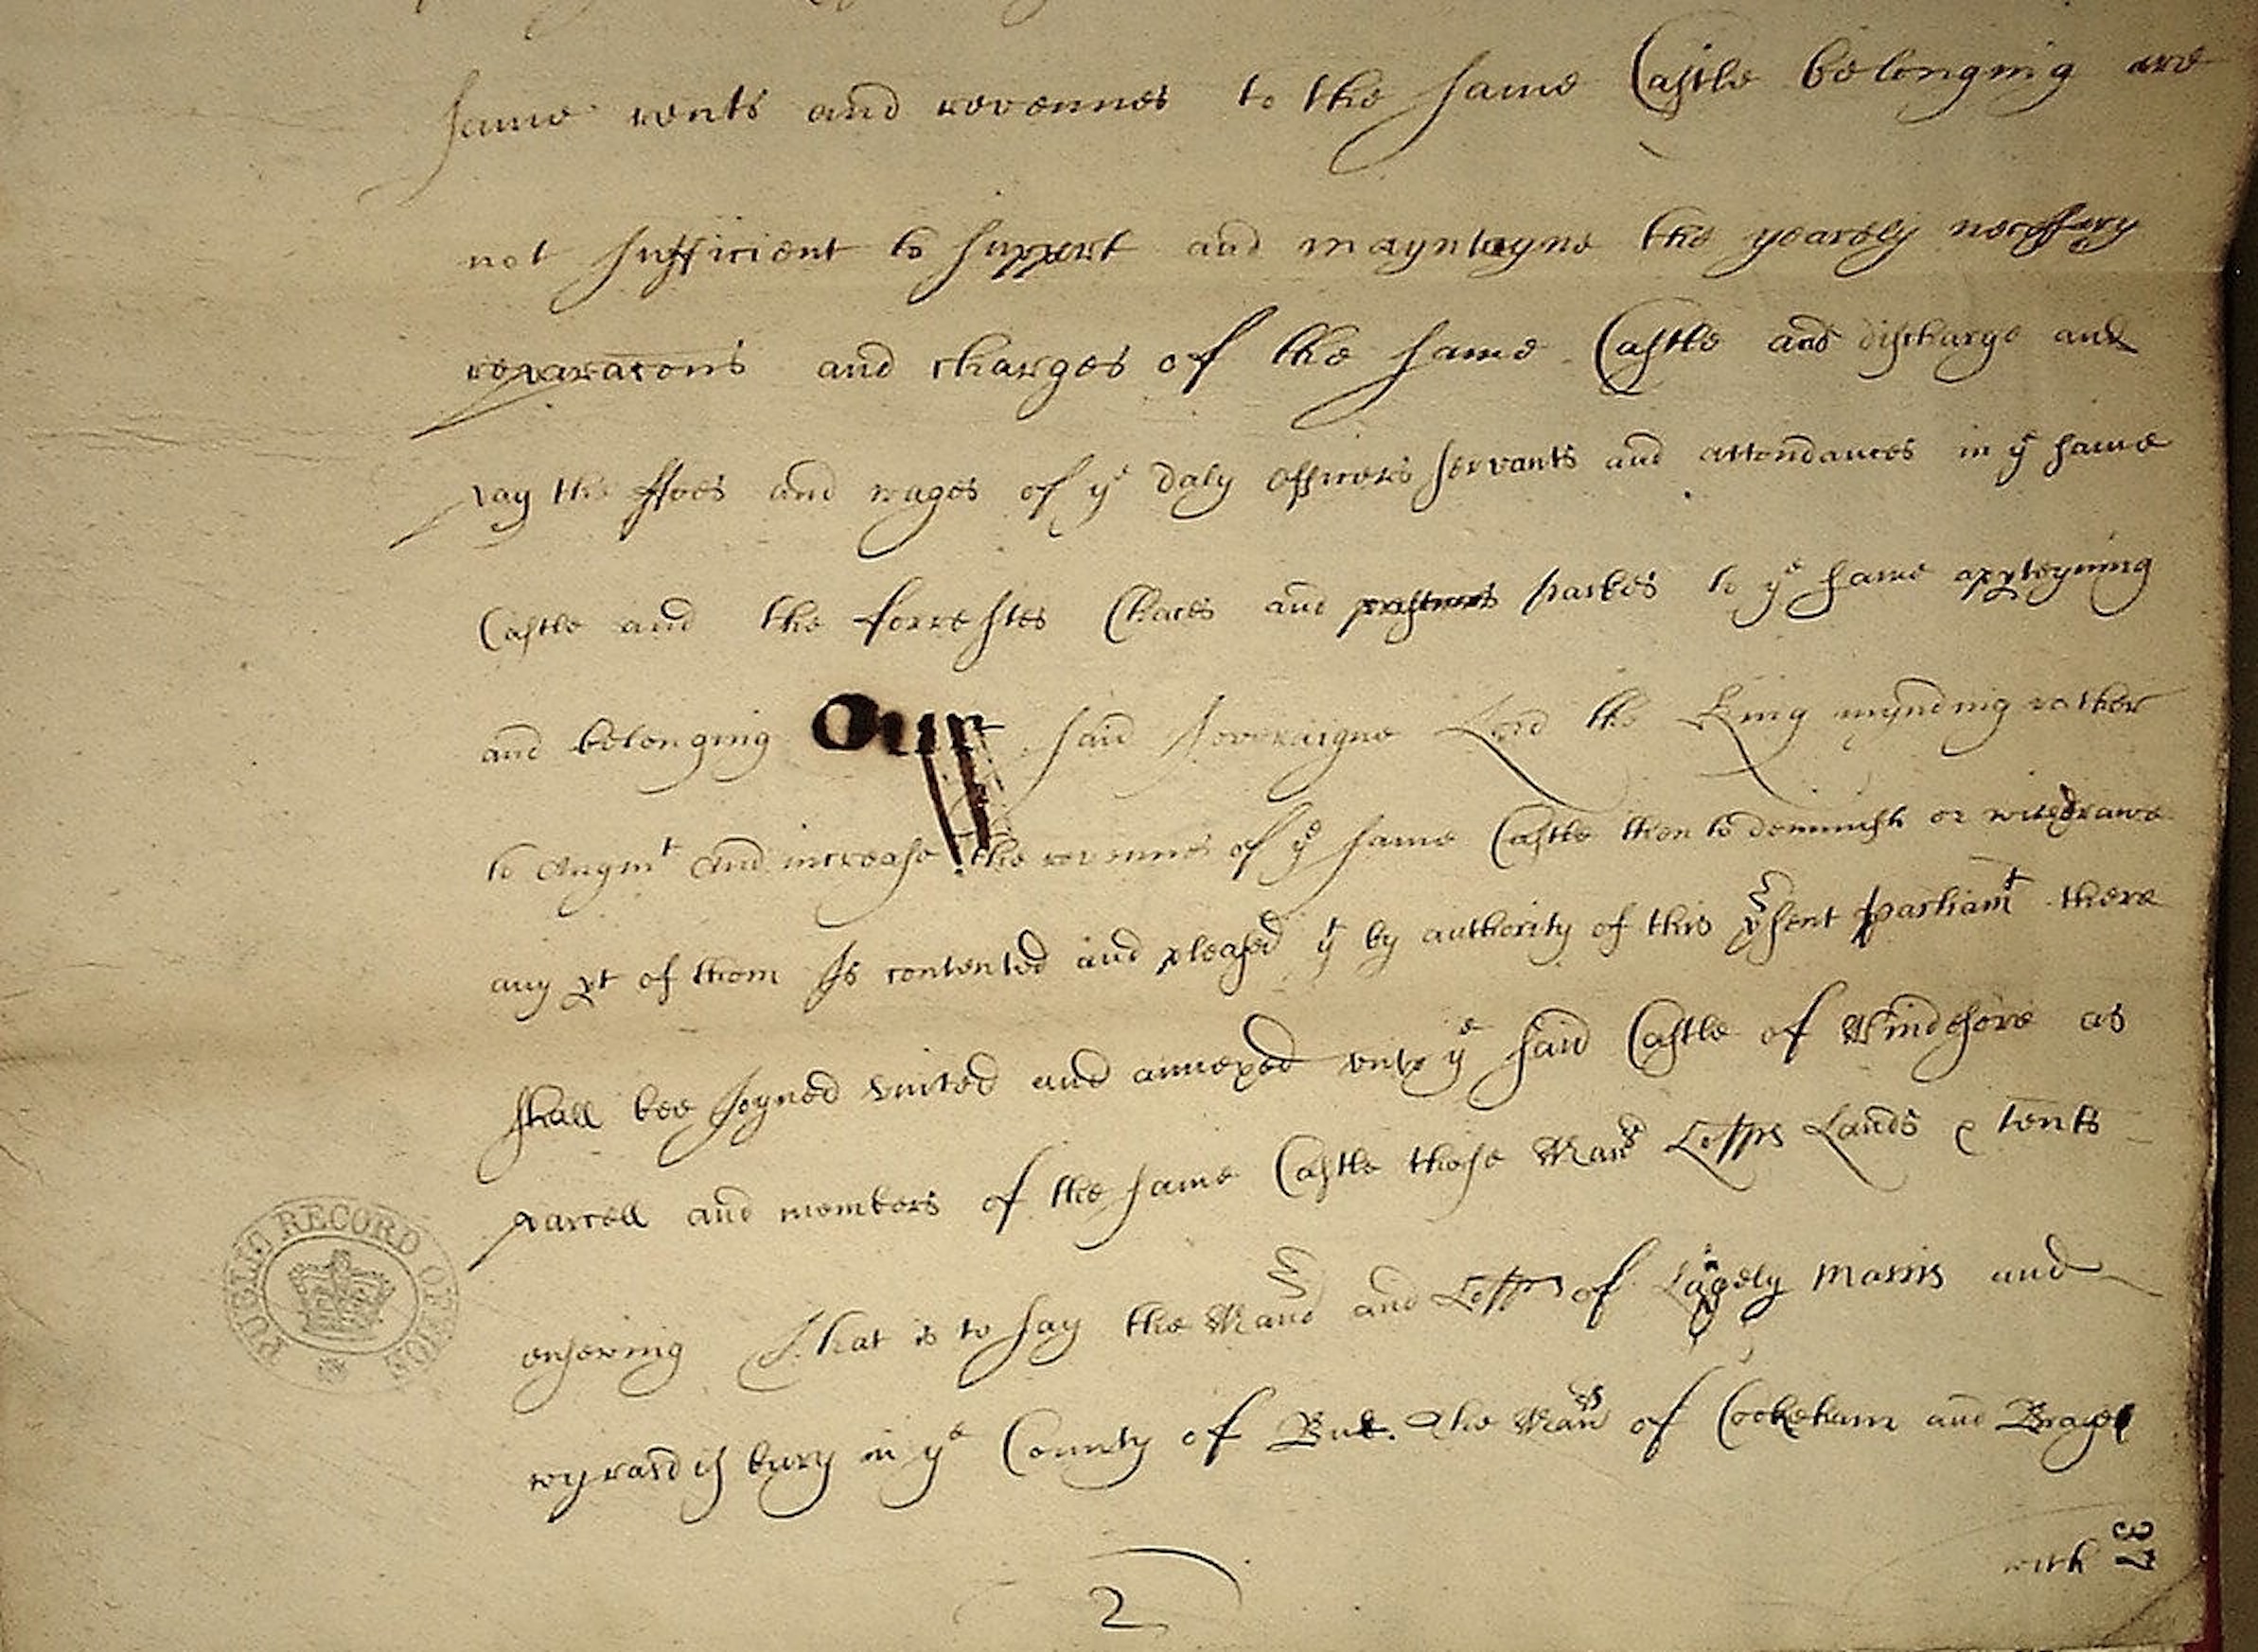 same rents and revennes to the same Castle belonging are
not sufficient to support and mayntayne the yearely necessary
reparacons and charges of the same Castle and discharge and
pay the ffees and wages of yᵉ daly officers servants and attendances in yᵉ same
Castle and the forrestes Chaces and parkes to yᵉ same apperteyning
and belonging Our said Soveraigne Lord the King mynding rather
to Augmᵗ and increase the revenues of yᵉ same Castle then to deminish or withdrawe
any pt of them Is contented and pleased yᵗ by authority of this psent parliamᵗ there
shall bee Joyned united and annexed unto yᵉ said Castle of Windesore as
parcell and members of the same Castle those Manᵈ Lopps Lands & tents
ensewing That is to say the Manᵈ and Lopps of Langely Marris and
wyrardisbury in yᵉ County of Buk. The Manˢ of Cookeham and Braye
with
37
2
PUBLIC RECORD OFFICE